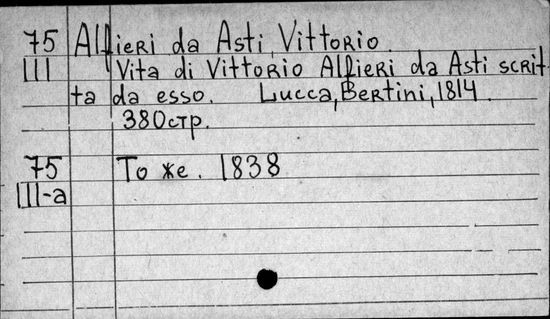 75 Alfieri da Asti, Vittorio.
III Vita di Vittorio Alfieri da Asti scrit
ta da esso. Lucca, Bertini, 1814.
380стр.
75 То же. 1838
III-a